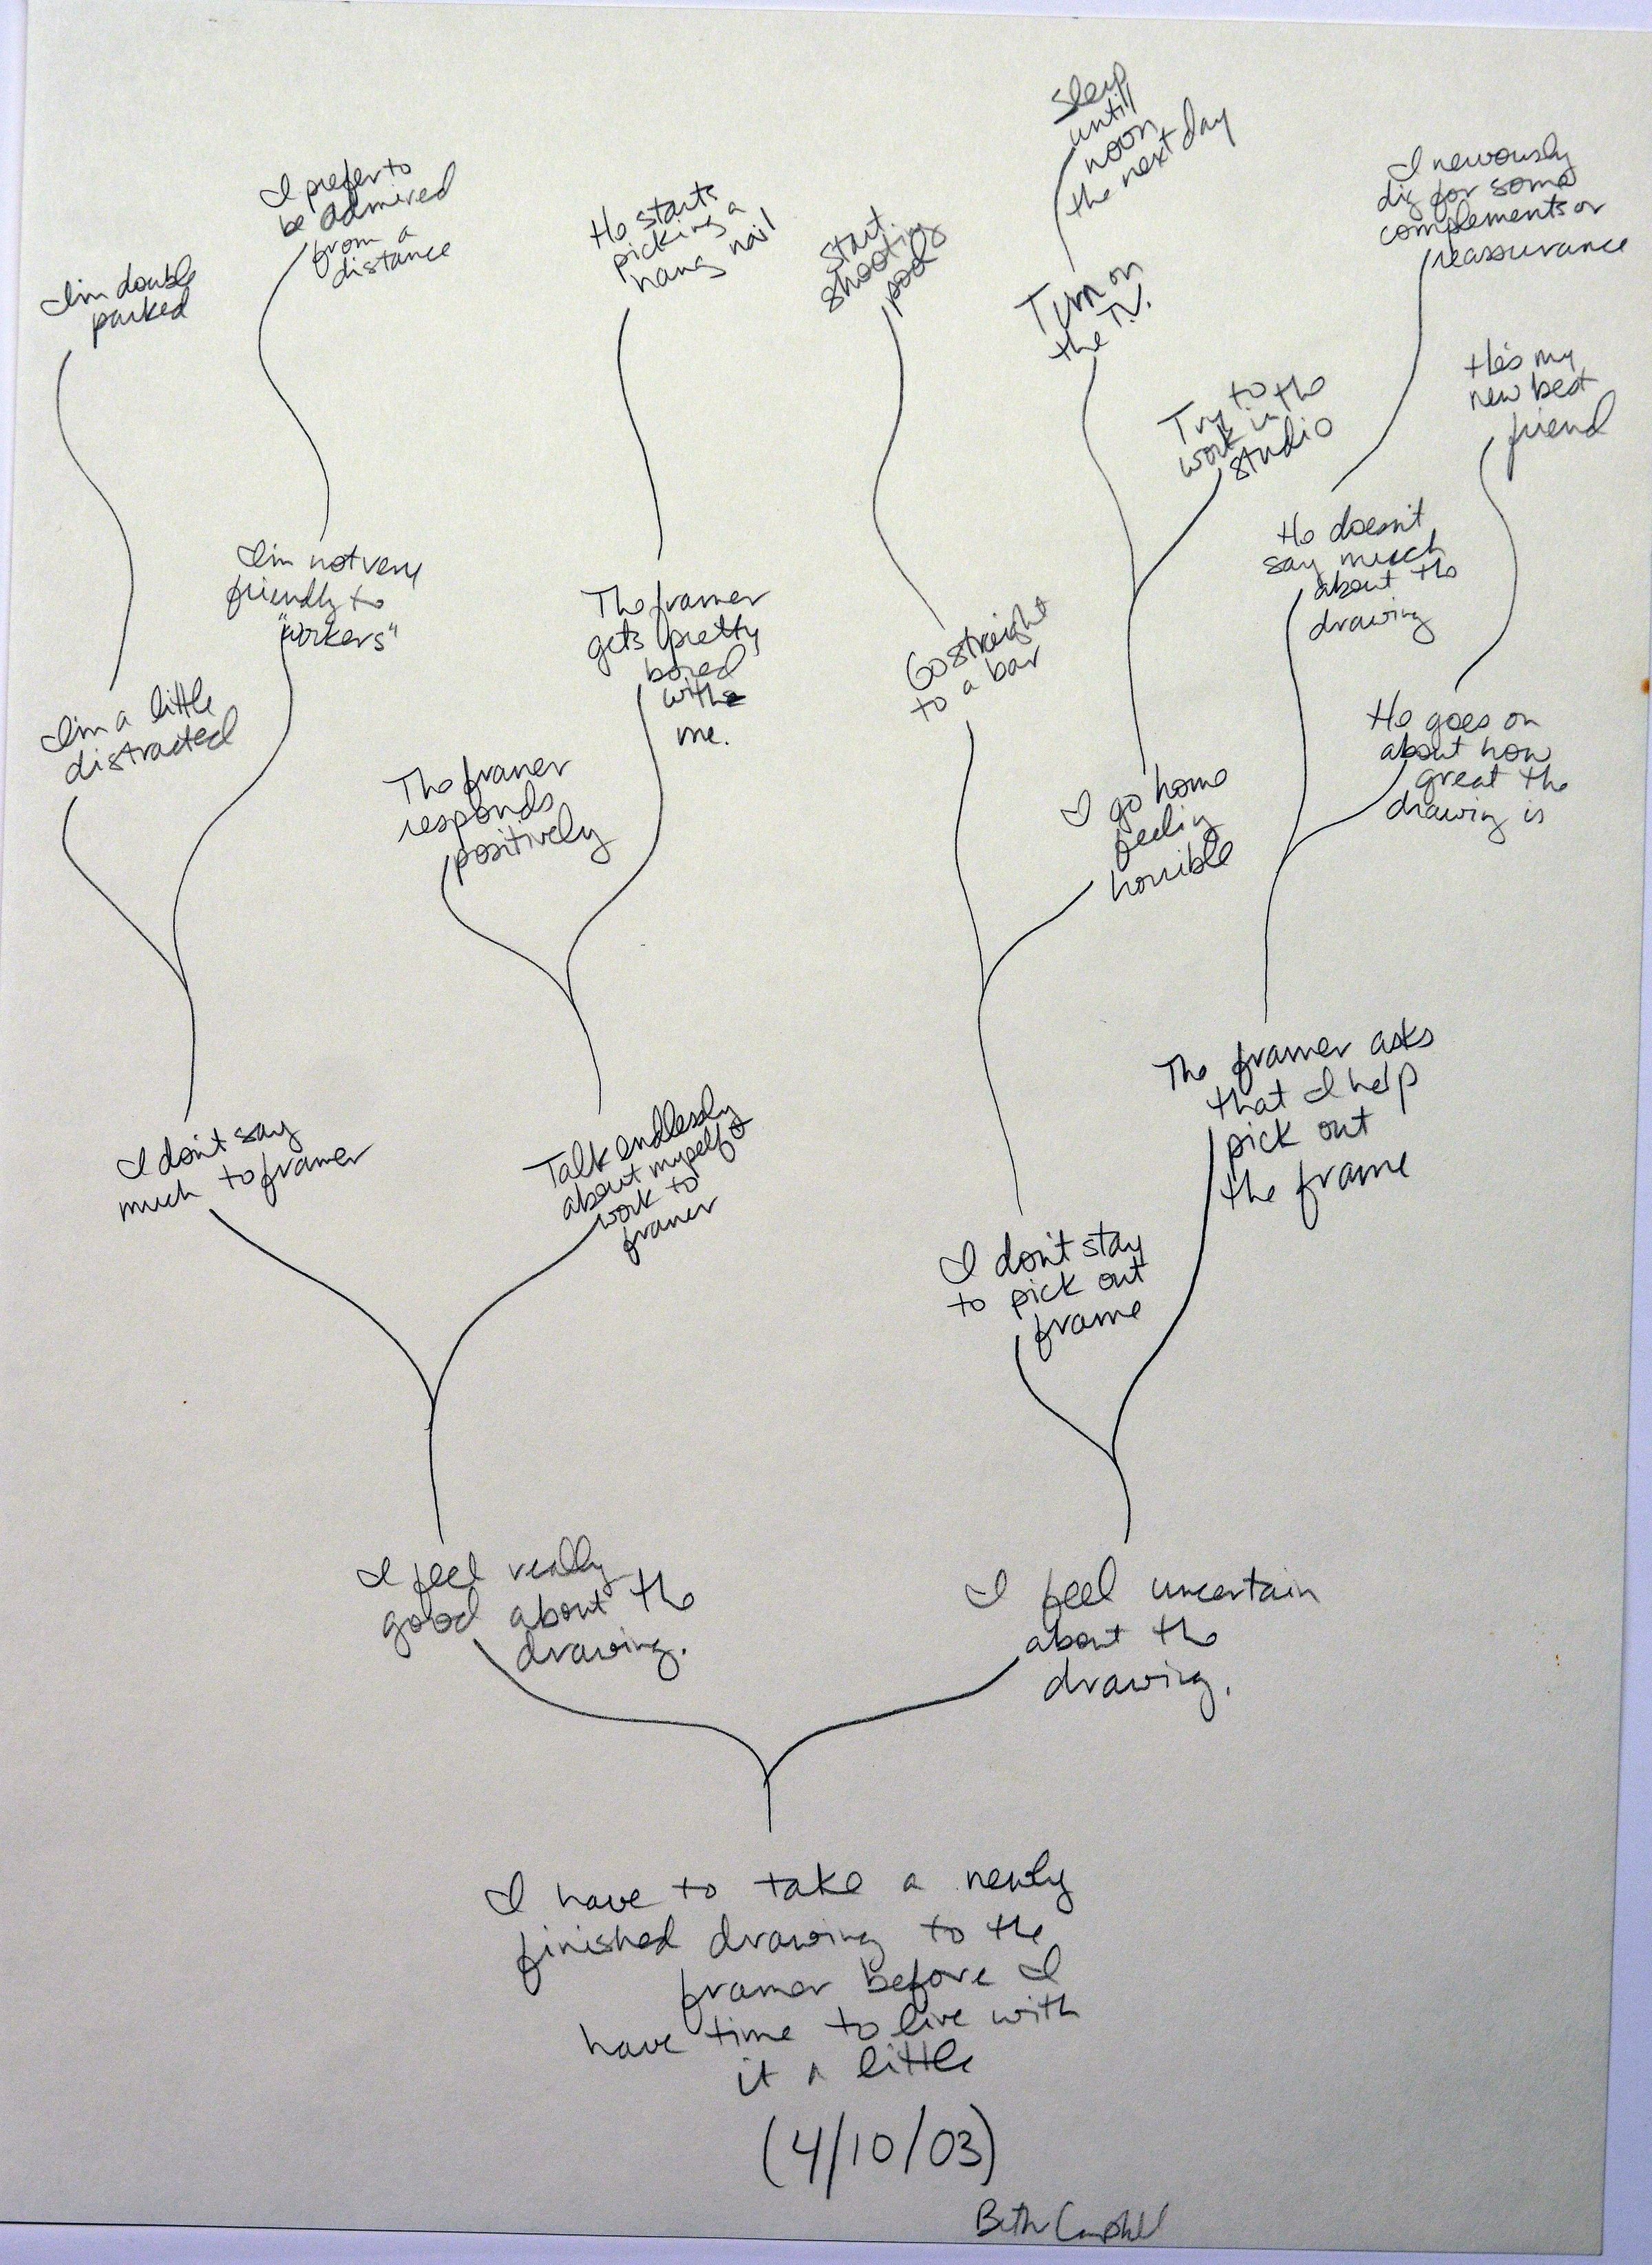 Sleep
until
noon
the next day
I prefer to
be admired
from a
distance
I nervously
dig for some
complements or
reassurance
He starts
picking a
hang nail
Start
shooting
pool
I'm double
parked
Turn on
the T.V.
He's my
new best
friend
Try to
work in the
studio
He doesn't
say much
about the
drawing
I'm not very
friendly to
"workers"
The framer
gets pretty
bored
with
me.
Go streight
to a bar
I'm a little
distracted
He goes on
about how
great the
drawing is
The framer
responds
positively
I go home
feeling
horrible
The framer asks
that I help
pick out
the frame
I don't say
much to framer
Talk endlessly
about myself &
work to
framer
I don't stay
to pick out
frame
I feel really
good about the
drawing.
I feel uncertain
about the
drawing.
I have to take a newly
finished drawing to the
framer before I
have time to live with
it a little
(4/10/03)
Beth Campbell